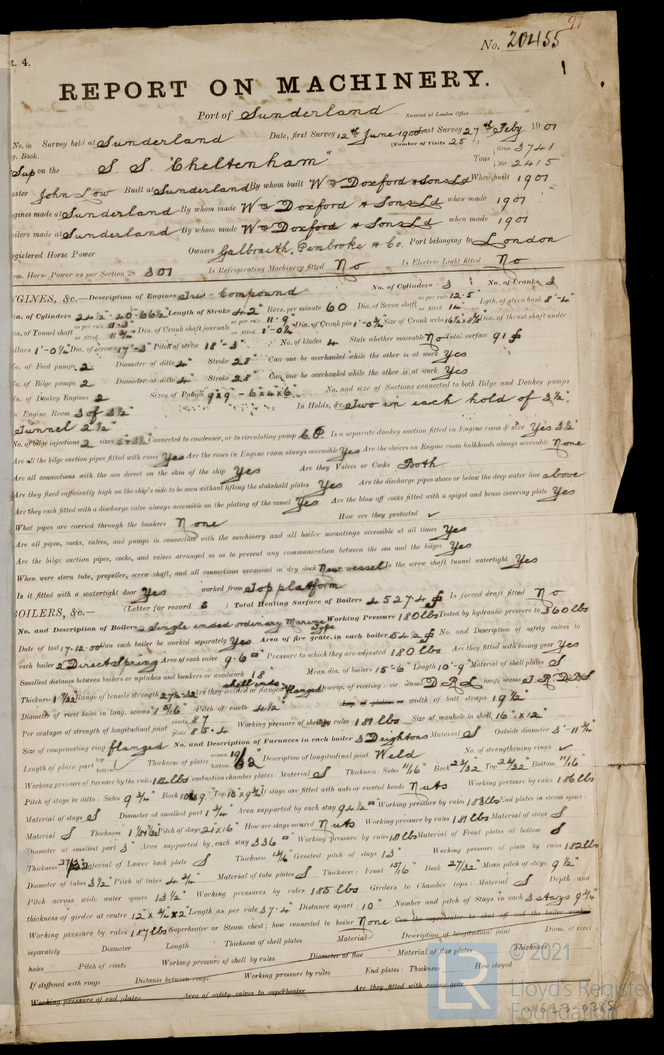 97
No. 20455
t. 4.
REPORT ON MACHINERY.
Port of Sunderland Received at London Office
No. in Survey held at Sunderland Date, first Survey 12th June 1900 Last Survey 27th Feby 1901
g. Book. (Number of Visits 25)
Sup on the S. S. "Cheltenham" Tons Gross 3741 Net 2415
ster John Low Built at Sunderland By whom built Wm Doxford & Sons Ld When built 1901
gines made at Sunderland By whom made Wm Doxford & Sons Ld when made 1901
ilers made at Sunderland By whom made Wm Doxford & Sons Ld when made 1901
egistered Horse Power Owners Galbraith, Pembroke & Co. Port belonging to London
om. Horse Power as per Section 28 301 Is Refrigerating Machinery fitted No Is Electric Light fitted No
NGINES, &c.—Description of Engines Tri-Compound No. of Cylinders 3 No. of Cranks 3
ia. of Cylinders 24½-40-66½ Length of Stroke 42" Revs. per minute 60 Dia. of Screw shaft as per rule 12.5 as fitted 14" Lgth. of stern bush 8'-4"
ia. of Tunnel shaft as per rule 11.3" as fitted 11¾" Dia. of Crank shaft journals as per rule 11.9" as fitted 1'-0¼" Dia. of Crank pin 1'-0¾" Size of Crank webs Dia. of thrust shaft under
ollars 1'-0¼" Dia. of screw 17'-3" Pitch of screw 18'-3" No. of blades 4 State whether moveable No Total surface 91 ft
o. of Feed pumps 2 Diameter of ditto 4" Stroke 28" Can one be overhauled while the other is at work Yes
o. of Bilge pumps 2 Diameter of ditto 4" Stroke 28" Can one be overhauled while the other is at work Yes
o. of Donkey Engines 2 Sizes of Pumps 9x9 - 6x4x6 No. and size of Suctions connected to both Bilge and Donkey pumps
n Engine Room 3 of 3½" In Holds, &c. Two in each hold of 3½"
Tunnel 2½"
No. of bilge injections 2 sizes Connected to condenser, or to circulating pump C.P. Is a separate donkey suction fitted in Engine room & size Yes 3½"
Are all the bilge suction pipes fitted with roses Yes Are the roses in Engine room always accessible Yes Are the sluices on Engine room bulkheads always accessible None
Are all connections with the sea direct on the skin of the ship Yes Are they Valves or Cocks Both
Are they fixed sufficiently high on the ship's side to be seen without lifting the stokehold plates Yes Are the discharge pipes above or below the deep water line above
Are they each fitted with a discharge valve always accessible on the plating of the vessel Yes Are the blow off cocks fitted with a spigot and brass covering plate Yes
What pipes are carried through the bunkers None How are they protected ✓
Are all pipes, cocks, valves, and pumps in connection with the machinery and all boiler mountings accessible at all times Yes
Are the bilge suction pipes, cocks, and valves arranged so as to prevent any communication between the sea and the bilges Yes
When were stern tube, propeller, screw shaft, and all connections examined in dry dock New vessel Is the screw shaft tunnel watertight Yes
Is it fitted with a watertight door Yes worked from Top platform
BOILERS, &c.— (Letter for record S) Total Heating Surface of Boilers 4527.4 ft Is forced draft fitted No
No. and Description of Boilers 2 Single ended ordinary Marine Type Working Pressure 180 lbs Tested by hydraulic pressure to 360 lbs
Date of test 17.12.00 Can each boiler be worked separately Yes Area of fire grate in each boiler 54.2 ft No. and Description of safety valves to
each boiler 2 Direct Spring Area of each valve 9.6 Pressure to which they are adjusted 180 lbs Are they fitted with easing gear Yes
Smallest distance between boilers or uptakes and bunkers or woodwork 18" Mean dia. of boilers 15'-6" Length 10'-9" Material of shell plates S
Thickness Range of tensile strength Are they welded or flanged flanged Descrip. of riveting: cir. seams D.R.L. long. seams
Diameter of rivet holes in long. seams Pitch of rivets width of butt straps 19½"
Per centage of strength of longitudinal joint rivets 87 plate 85.4 Working pressure of shell by rules 181 lbs Size of manhole in shell 16" x 12"
Size of compensating ring flanged No. and Description of Furnaces in each boiler 3 Deightons Material S Outside diameter
Length of plain part top bottom Thickness of plates crown bottom Description of longitudinal joint Weld No. of strengthening rings ✓
Working pressure of furnace by the rules Combustion chamber plates: Material S Thickness: Sides 11/16" Back 23/32 Top 23/32" Bottom 11/16
Pitch of stays to ditto: Sides 9¾" Back Top If stays are fitted with nuts or riveted heads Nuts Working pressure by rules 186 lbs
Material of stays S Diameter at smallest part Area supported by each stay Working pressure by rules 183 lbs End plates in steam space:
Material S Thickness Pitch of stays 21x16" How are stays secured Nuts Working pressure by rules 181 lbs Material of stays S
Diameter at smallest part 3" Area supported by each stay 336 Working pressure by rules Material of Front plates at bottom S
Thickness 27/32 Material of Lower back plate S Thickness Greatest pitch of stays 13 Working pressure of plate by rules 182 lbs
Diameter of tubes 3½" Pitch of tubes 4¾" Material of tube plates S Thickness: Front 15/16" Back 27/32" Mean pitch of stays 9½"
Pitch across wide water spaces 13½" Working pressures by rules 185 lbs Girders to Chamber tops: Material S Depth and
thickness of girder at centre Length as per rule Distance apart 10" Number and pitch of Stays in each 3 stays 9¾"
Working pressure by rules 187 lbs Superheater or Steam chest; how connected to boiler None Can the superheater be shut off and the boiler worked
separately Diameter Length Thickness of shell plates Material Description of longitudinal joint Diam. of rivet
holes Pitch of rivets Working pressure of shell by rules Diameter of flue Material of flue plates Thickness
If stiffened with rings Distance between rings Working pressure by rules End plates: Thickness How stayed
Working pressure of end plates Area of safety valves to superheater Are they fitted with easing gear
LR
© 2021
Lloyd's Register
Foundation